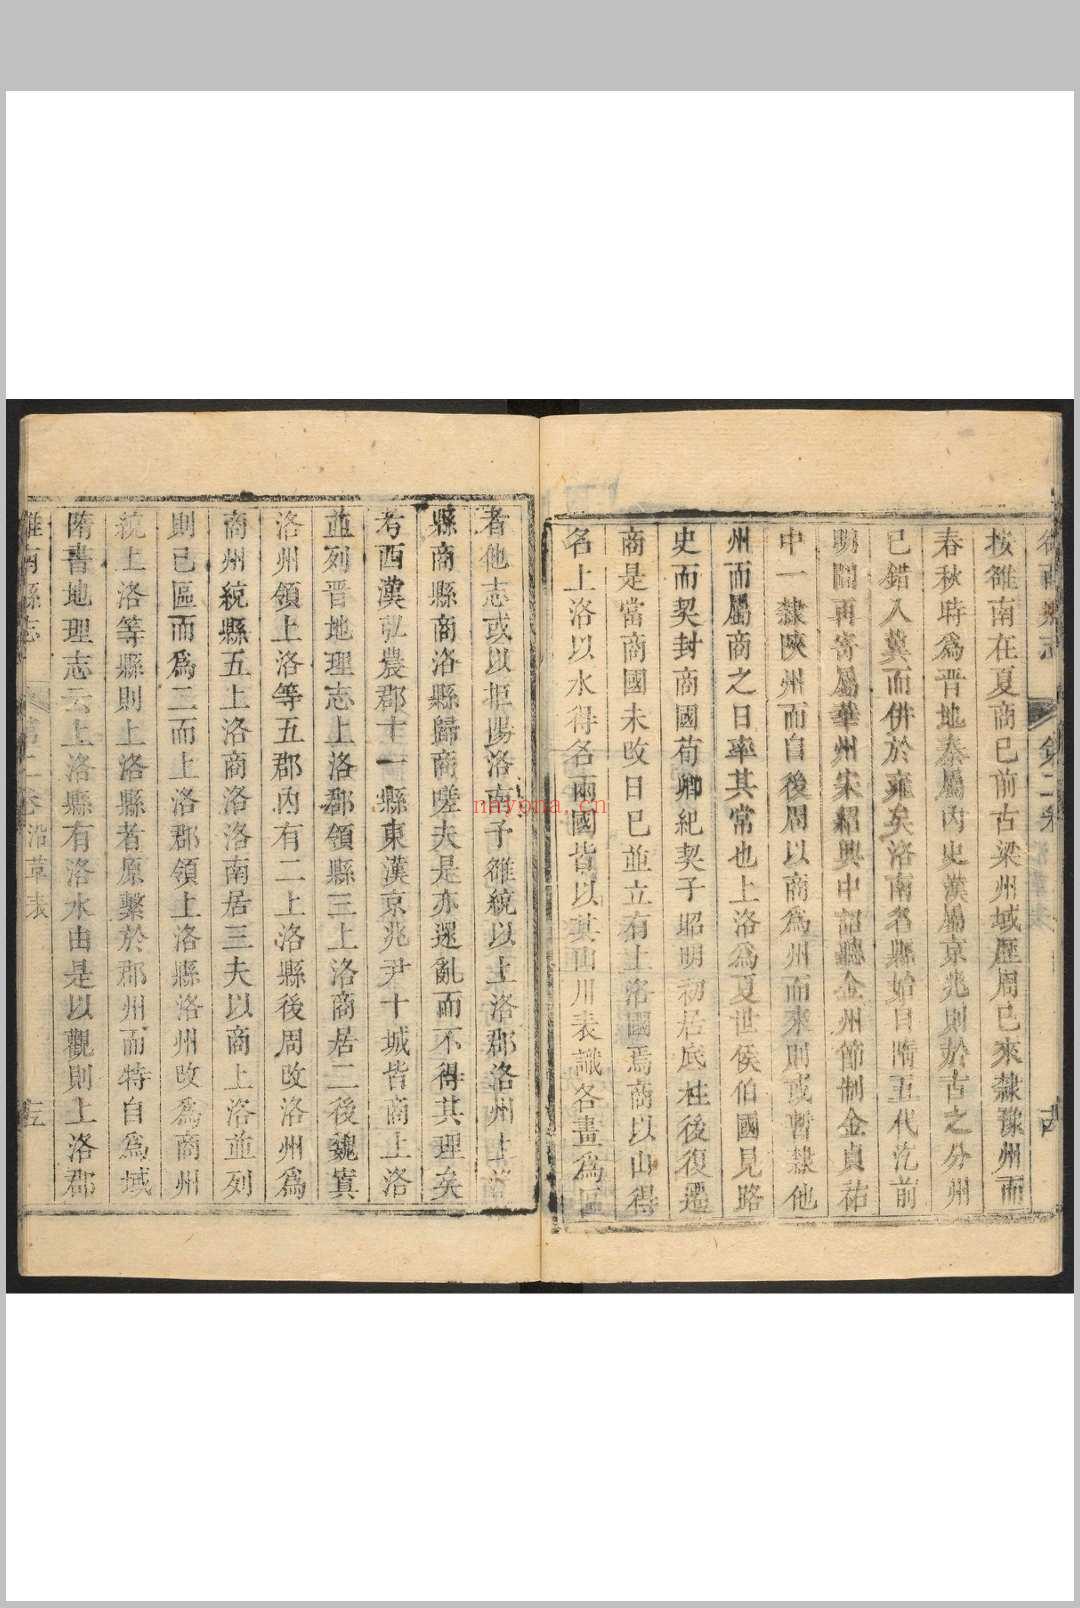 雒南縣志 第二卷 古
按雒南在夏商已前古梁州域歷周已來隸豫州而
春秋時爲晉地秦屬內史漢屬京兆則於古之分州
已錯入冀而併於雍矣洛南名縣始自隋五代迄前
明間再寄屬華州宋紹興中詔聽金州節制金貞祐
中一隸陝州而自後周以商爲州而來則或暫隸他
州而屬商之日率其常也上洛爲夏世侯伯國見路
史而契封商國荀卿紀契子昭明初居底柱後復遷
商是當商國未改日已並立有上洛國焉商以山得
名上洛以水得名兩國皆以其山川表識各畫爲區
者他志或以拒陽洛南予雒統以上洛郡洛州上洛
縣商縣商洛縣歸商嗟夫是亦遝亂而不得其理矣
考西漢弘農郡十一縣東漢京兆尹十城皆商上洛
並列晉地理志上洛郡領縣三上洛商居二後魏寘
洛州領上洛等五郡內有二上洛縣後周改洛州爲
商州統縣五上洛商洛洛南居三夫以商上洛並列
則已區而爲二而上洛郡領上洛縣洛州改爲商州
統上洛等縣則上洛縣者原繫於郡州而特自爲域
隋書地理志云上洛縣有洛水由是以觀則上洛郡
雒南縣志 第二卷 沿革表
nayona.cn